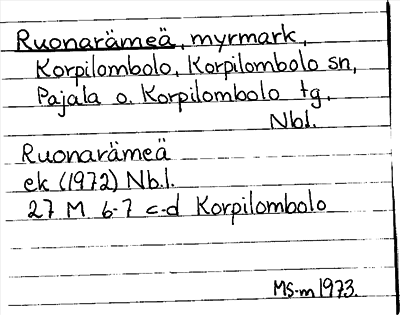 Ruonarämeä, myrmark,
Korpilombolo, Korpilombolo sn,
Pajala o. Korpilombolo tg.
Nbl.
Ruonarämeä
ek (1972) Nb.l.
27 M 6-7 c-d Korpilombolo
MS-m 1973.